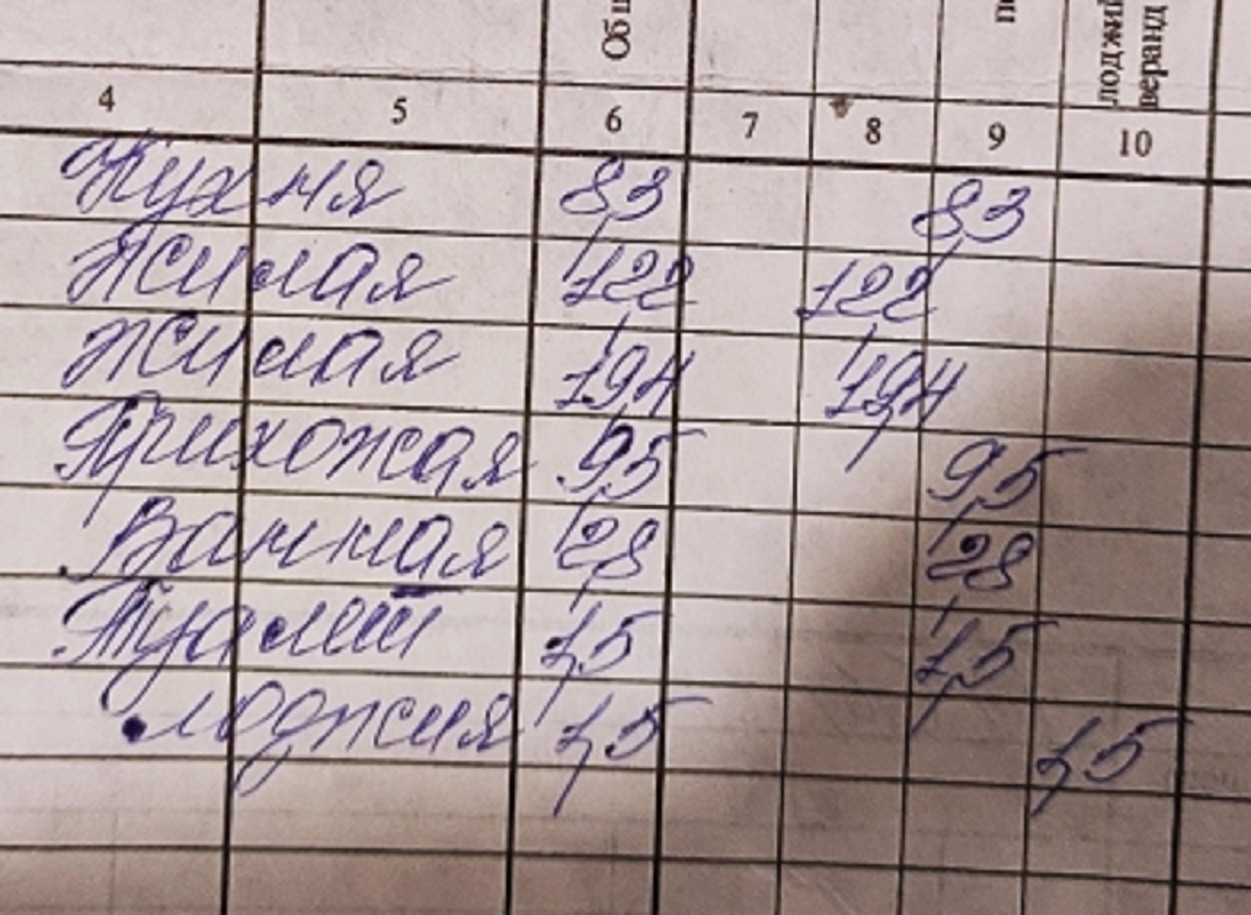 Общ
по
лоджий
веранд
4 5 6 7 8 9 10
Кухня 8,3 8,3
Жилая 12,2 12,2
Жилая 19,4 19,4
Прихожая 9,5 9,5
Ванная 2,8 2,8
Туалет 1,5 1,5
лоджия 1,5 1,5